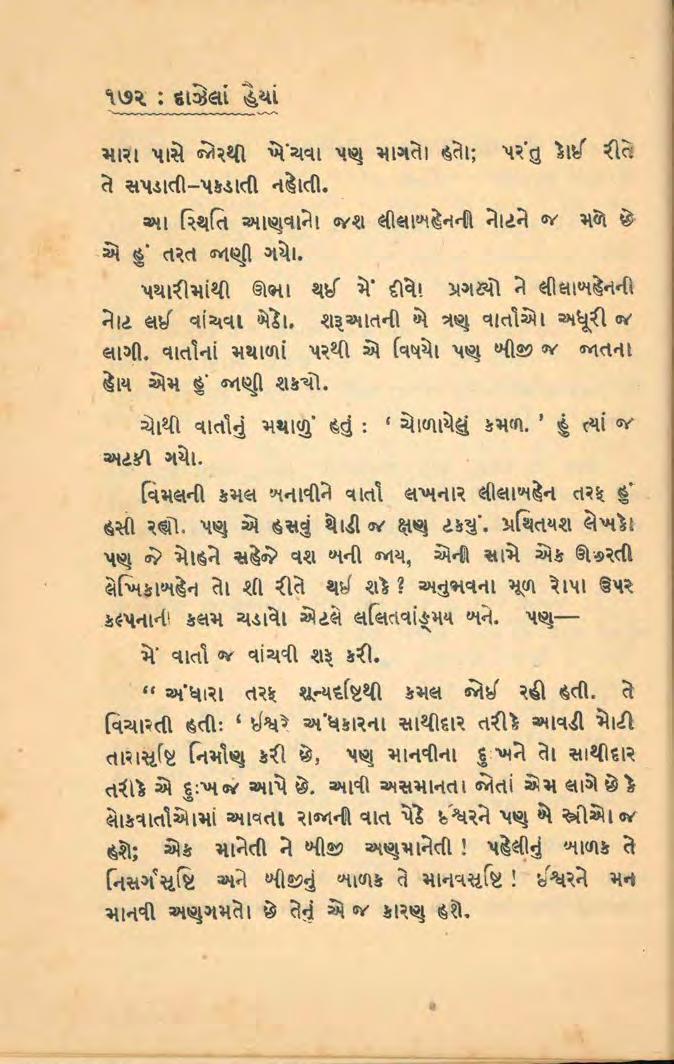 ૧૭૨ : દાઝેલાં હૈયાં
મારા પાસે જોરથી ખેંચવા પણ માગતો હતો; પરંતુ કોઈ રીતે
તે સપડાતી–પકડાતી નહોતી.
આ સ્થિતિ આણવાનો જશ લીલાબહેનની નોટને જ મળે છે
એ હું તરત જાણી ગયો.
પથારીમાંથી ઊભા થઈ મેં દીવો પ્રગટ્યો ને લીલાબહેનની
નોટ લઈ વાંચવા બેઠો. શરૂઆતની બે ત્રણ વાર્તાઓ અધૂરી જ
લાગી. વાર્તાનાં મથાળાં પરથી એ વિષયો પણ બીજી જ જાતના
હોય એમ હું જાણી શકયો.
ચોથી વાર્તાનું મથાળું હતું : ‘ ચોળાયેલું કમળ. ’ હું ત્યાં જ
અટકી ગયો.
વિમલની કમલ બનાવીને વાર્તા લખનાર લીલાબહેન તરફ હું
હસી રહ્યો. પણ એ હસવું થોડી જ ક્ષણ ટકયું. પ્રથિતયશ લેખકો
પણ જે મોહને સહેજે વશ બની જાય, એની સામે એક ઊછરતી
લેખિકાબહેન તો શી રીતે થઈ શકે ? અનુભવના મૂળ રોપા ઉપર
કલ્પનાની કલમ ચડાવો એટલે લલિતવાઙ્મય બને. પણ—
મેં વાર્તા જ વાંચવી શરૂ કરી.
“ અંધારા તરફ શૂન્યદૃષ્ટિથી કમલ જોઈ રહી હતી. તે
વિચારતી હતીઃ ‘ ઈશ્વરે અંધકારના સાથીદાર તરીકે આવડી મોટી
તારાસૃષ્ટિ નિર્માણ કરી છે, પણ માનવીના દુઃખને તો સાથીદાર
તરીકે એ દુઃખ જ આપે છે. આવી અસમાનતા જોતાં એમ લાગે છે કે
લોકવાર્તાઓમાં આવતા રાજાની વાત પેઠે ઈશ્વરને પણ બે સ્ત્રીઓ જ
હશે; એક માનેતી ને બીજી અણમાનેતી ! પહેલીનું બાળક તે
નિસર્ગસૃષ્ટિ અને બીજીનું બાળક તે માનવસૃષ્ટિ ! ઈશ્વરને મન
માનવી અણગમતો છે તેનું એ જ કારણ હશે.